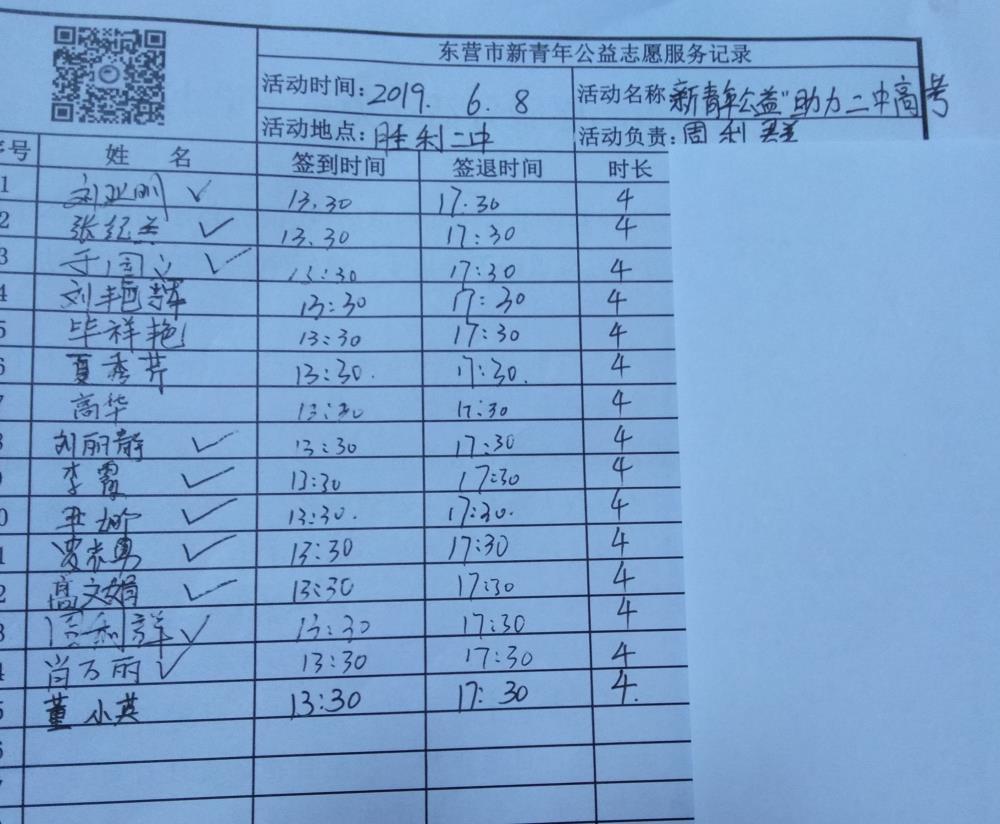 东营市新青年公益志愿服务记录
活动时间: 2019. 6. 8 活动名称 新青年公益"助力二中高考
活动地点: 胜利二中 活动负责: 周利群
序号 姓名 签到时间 签退时间 时长
1 刘亚刚 ✓ 13.30 17:30 4
2 张纪兰 ✓ 13.30 17:30 4
3 于国立 ✓ 13:30 17:30 4
4 刘艳辉 13:30 17:30 4
5 毕祥艳 13:30 17:30 4
6 夏秀芹 13:30. 17:30. 4
7 高华 13:30 17:30 4
8 刘丽静 ✓ 13:30 17:30 4
9 李霞 ✓ 13:30 17:30 4
0 ✓ 13:30. 17:30. 4
1 ✓ 13:30 17:30 4
2 高文娟 ✓ 13:30 17:30 4
3 周利群 ✓ 13:30 17:30 4
4 肖万丽 ✓ 13:30 17:30 4
5 董小英 13:30 17:30 4.
6
7